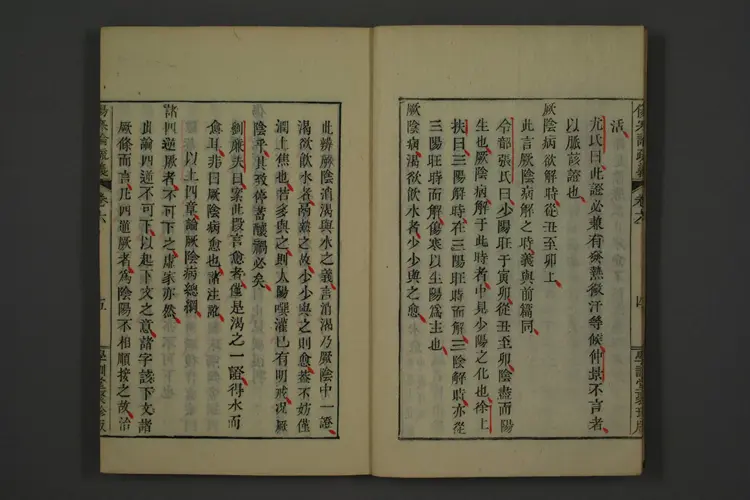 活
尤氏曰此證必兼有煩熱微汗等候仲景不言者
以脈該證也
厥陰病欲解時從丑至卯上
此言厥陰病解之時義與前篇同
令部張氏曰少陽旺于寅卯從丑至卯陰盡而陽
生也厥陰病解于此時者中見少陽之化也徐上
扶曰三陽解時在三陽旺時而解三陰解時亦從
三陽旺時而解傷寒以生陽為主也
厥陰病渴欲飲水者少少與之愈
傷寒論疏義 卷六 四
此辨厥陰消渴與水之義言消渴乃厥陰中一證
渴欲飲水者
少少與之則愈蓋不妨僅
潤上焦也若多與之則太陽噀灌已有明戒况厥
陰乎其致停蓄釀禍必矣
劉廉夫曰案此段言愈者僅是渴之一證得水而
愈耳非曰厥陰病愈也諸注訛
以上四章論厥陰病總綱
諸四逆厥者不可下之虛家亦然
此論四逆不可下以起下文之意諸字該下文諸
厥條而言凡四逆厥者為陰陽不相順接之故治
傷寒論疏義 卷六 五